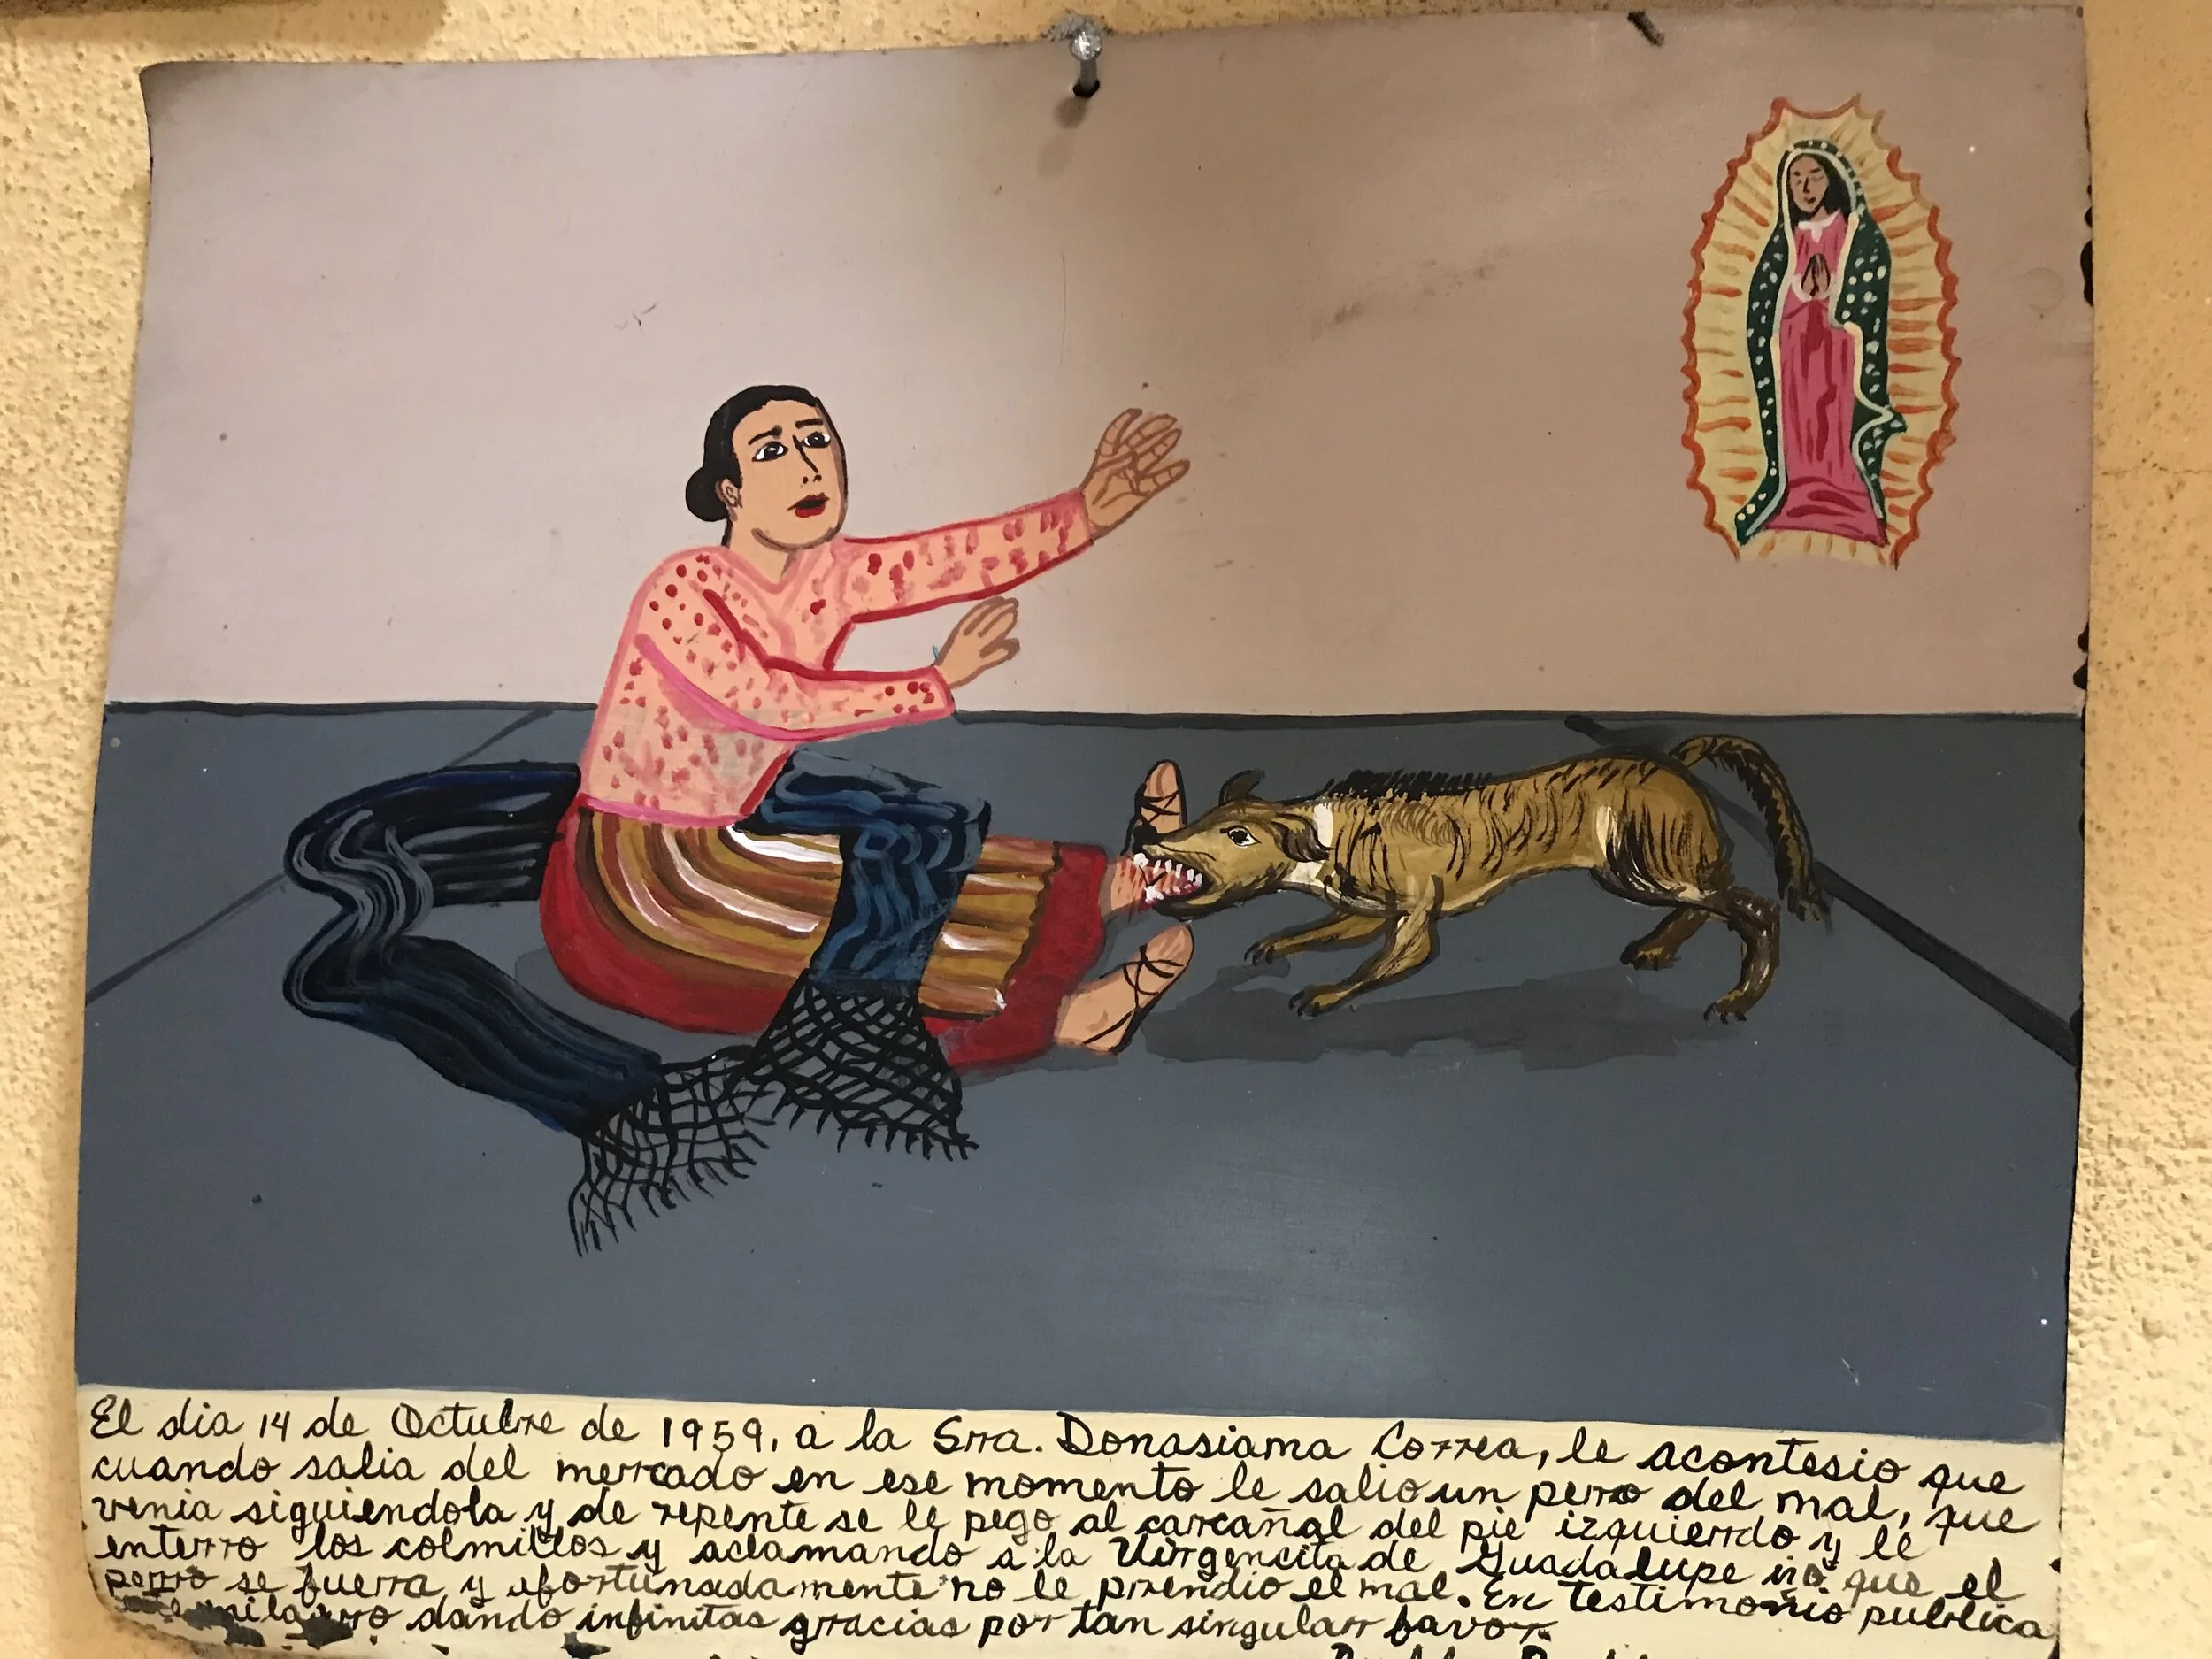 El dia 14 de Octubre de 1959, a la Srra. Donasiama Correa, le acontesio que
cuando salia del mercado en ese momento le salio un perro del mal, que
venia siguiendola y de repente se le pego al carcañal del pie izquierrdo y le
enterro los colmillos y aclamando a la Virrgencita de Guadalupe iso que el
perro se fuerra y afortunadamente no le prendio el mal. En testimonio publica
este milagrro dando infinitas gracias por tan singular favor.